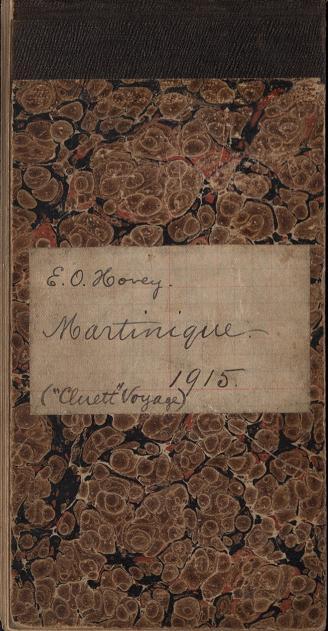 E. O. Hovey.
Martinique –
1915.
("Cluett" Voyage)